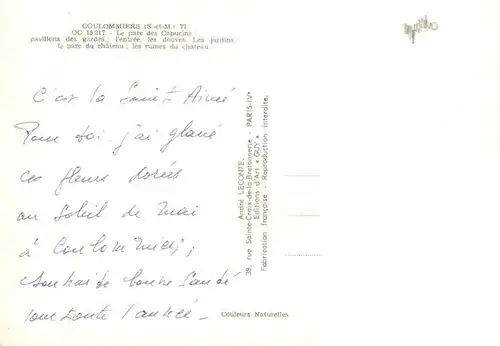 COULOMMIERS (S.-et-M.) 77
OC 15 217 - Le parc des Capucins
pavillons des gardes ; l'entrée, les douves. Les jardins
le parc du château ; les ruines du château.
C'est la Saint Aimé
Pour toi j'ai glané
ces fleurs dorées
au soleil de mai
à Coulommiers ;
souhaite bonne santé
pour toute l'année -
André LECONTE.
38, rue Sainte-Croix-de-la-Bretonnerie - PARIS-IVe
Editions d'Art « GUY »
Fabrication française - Reproduction interdite.
Couleurs Naturelles